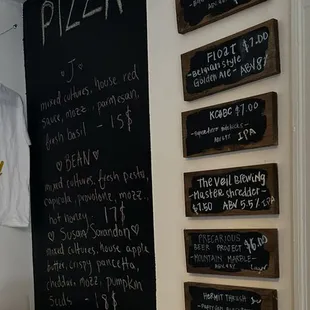 PIZZA
J
mixed cultures, house red
sauce, mozz, parmesan,
fresh basil - 15$
BEAN
mixed cultures, fresh pesto,
capicola, provolone, mozz,
hot honey. 17$
Susan Sarandon
mixed cultures, house apple
butter, crispy pancetta,
cheddar, pumpkin
seeds - 18$
FLOAT $7.00
-Belgian style
Golden Ale - ABV
KCBC $7.00
IPA
The Veil Brewing
-Master Shredder-
$7.50 ABV 5.5% IPA
PRECARIOUS $6.00
BEER PROJECT
-MOUNTAIN MARBLE-
Lager